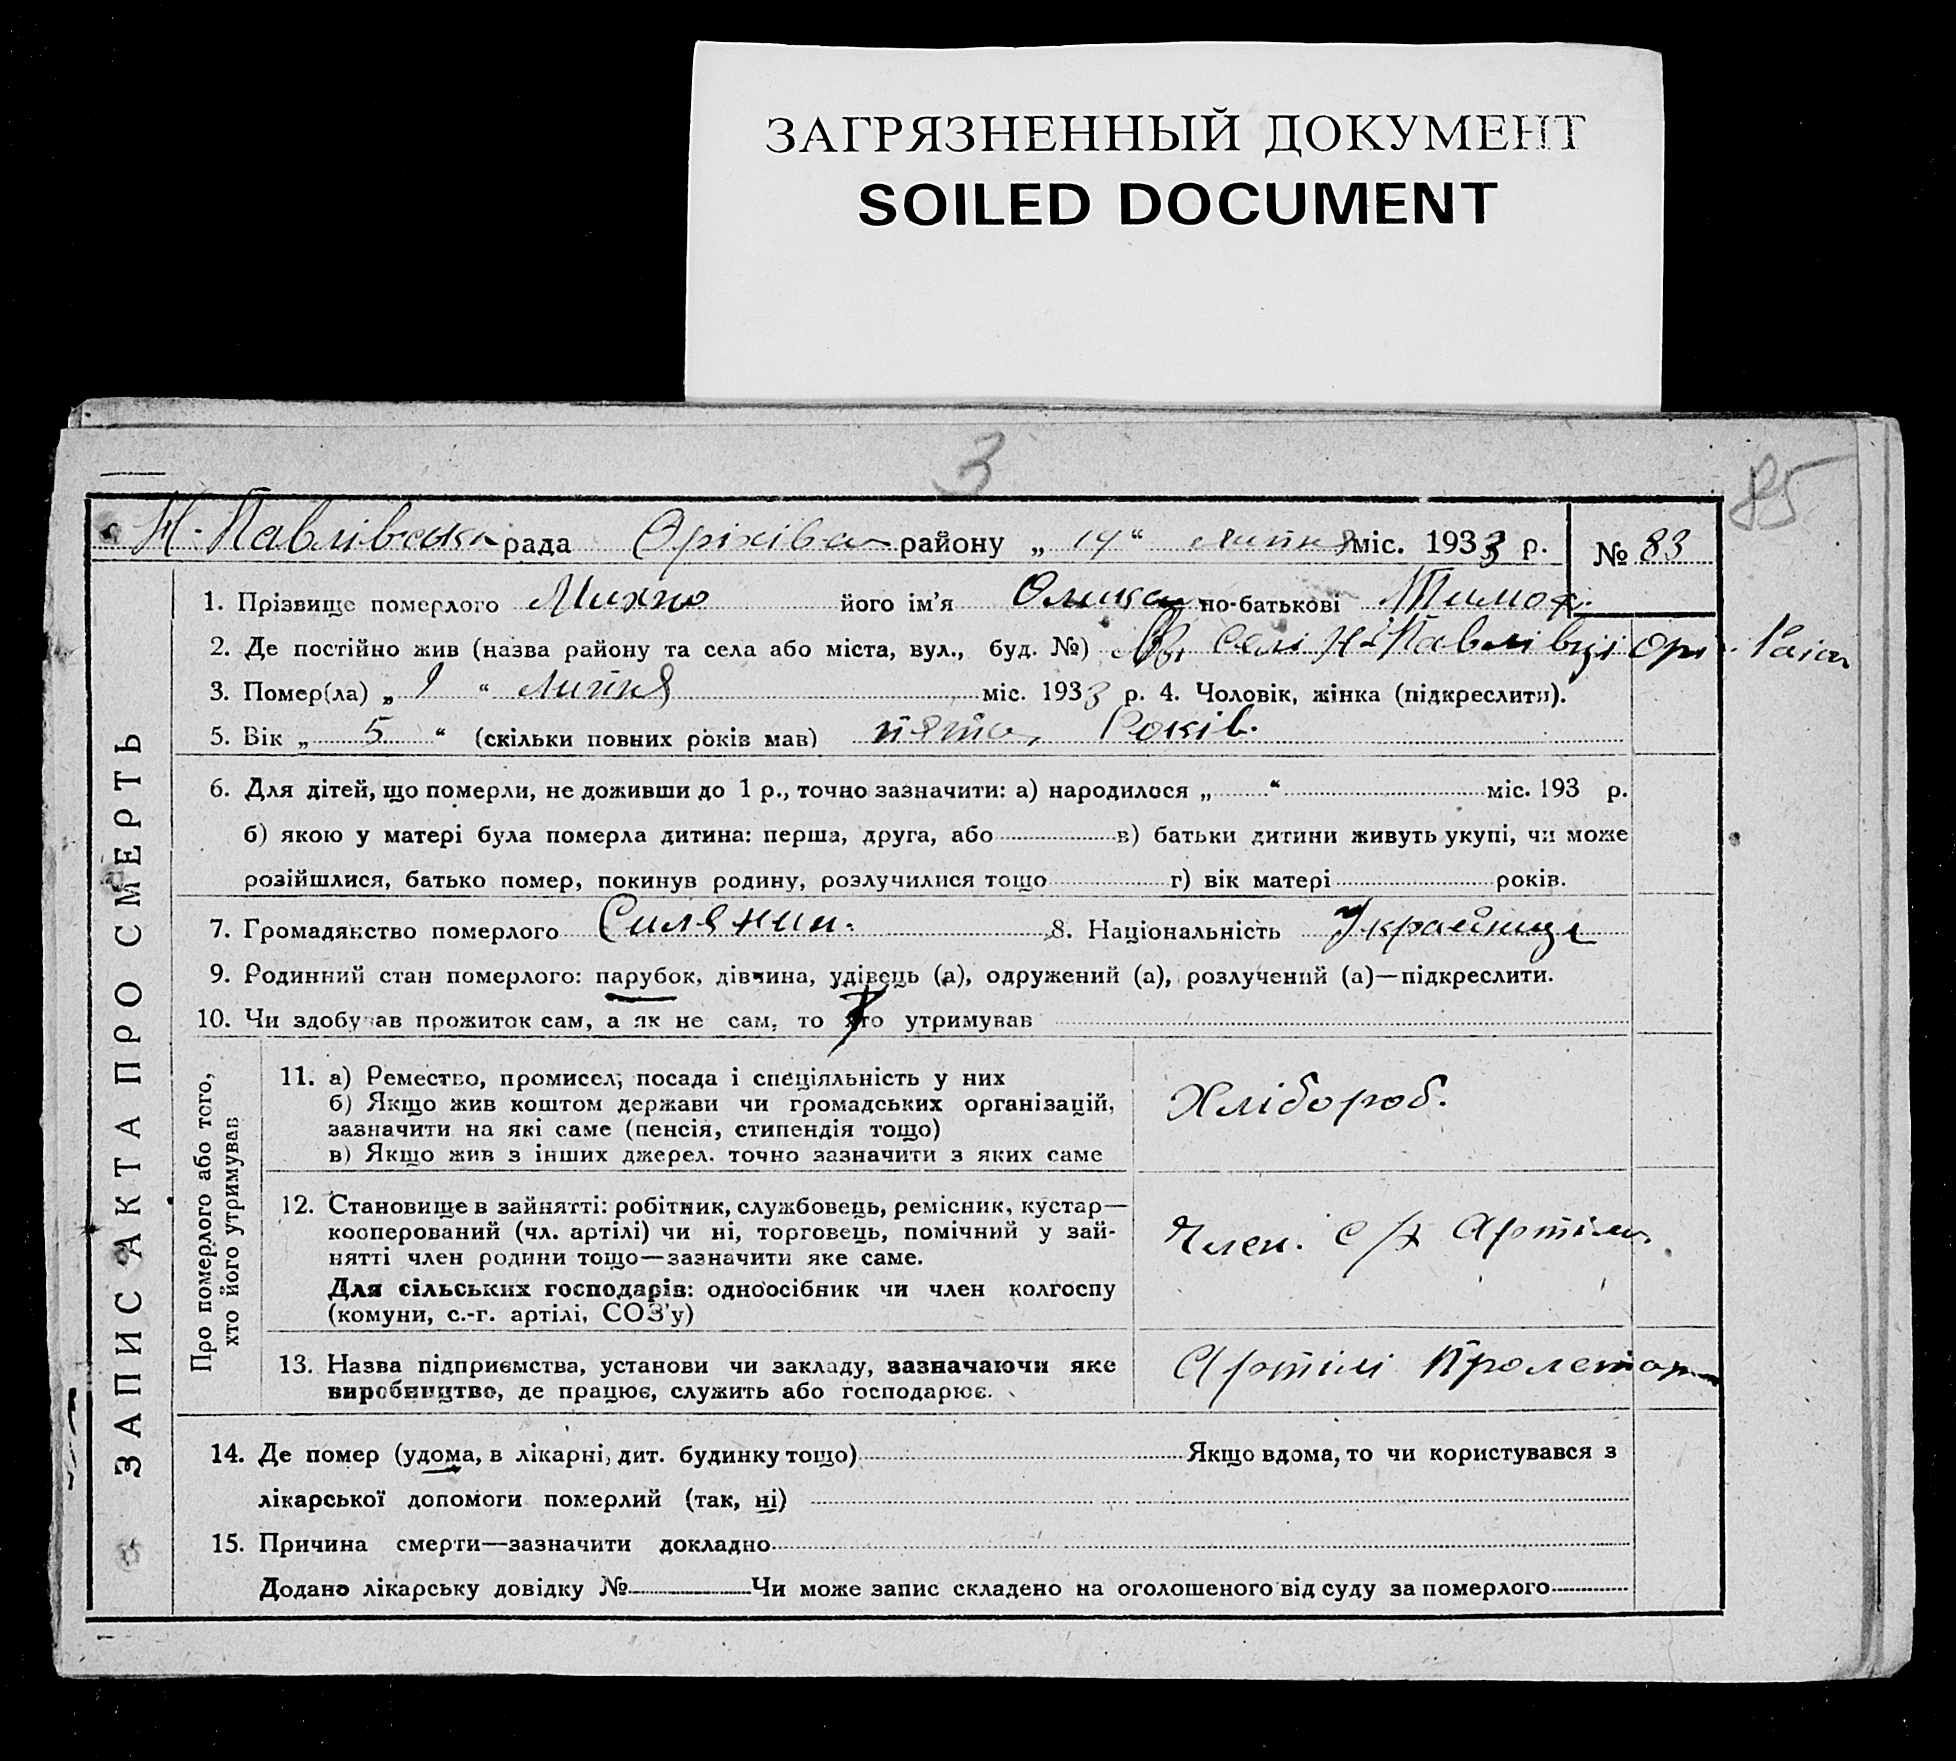 ЗАГРЯЗНЕННЫЙ ДОКУМЕНТ
SOILED DOCUMENT
3
85
Н-Павлівська рада Оріхівск району „ 14 “ липня міс. 1933 р. № 83
1. Прізвище померлого Михно його ім’я по-батькові Тимоф.
2. Де постійно жив (назва району та села або міста, вул., буд. №) В селі Н-Павлівці Оріх. Район
3. Помер(ла) „ “ Липня міс. 1933 р. 4. Чоловік, жінка (підкреслити).
5. Вік „ 5 “ (скільки повних років мав) пять Років.
6. Для дітей, що померли, не доживши до 1 р., точно зазначити: а) народилося „ “ міс. 193 р.
б) якою у матері була померла дитина: перша, друга, або в) батьки дитини живуть укупі, чи може
розійшлися, батько помер, покинув родину, розлучилися тощо г) вік матері років.
7. Громадянство померлого Силянин. 8. Національність Украйинці
9. Родинний стан померлого: парубок, дівчина, удівець (а), одружений (а), розлучений (а)—підкреслити.
10. Чи здобував прожиток сам, а як не сам, то хто утримував
ЗАПИС АКТА ПРО СМЕРТЬ
Про померлого або того,
хто його утримував
11. а) Ремество, промисел, посада і спеціяльність у них
б) Якщо жив коштом держави чи громадських організацій,
зазначити на які саме (пенсія, стипендія тощо)
в) Якщо жив з інших джерел, точно зазначити з яких саме
Хлібороб.
12. Становище в зайнятті: робітник, службовець, ремісник, кустар—
кооперований (чл. артілі) чи ні, торговець, помічний у зай-
нятті член родини тощо—зазначити яке саме.
Для сільських господарів: одноосібник чи член колгоспу
(комуни, с.-г. артілі, СОЗ’у)
Член. с/х Артіли.
13. Назва підприємства, установи чи закладу, зазначаючи яке
виробництво, де працює, служить або господарює.
Артілі Пролетар
14. Де помер (удома, в лікарні, дит. будинку тощо) Якщо вдома, то чи користувався з
лікарської допомоги померлий (так, ні)
15. Причина смерти—зазначити докладно
Додано лікарську довідку № Чи може запис складено на оголошеного від суду за померлого